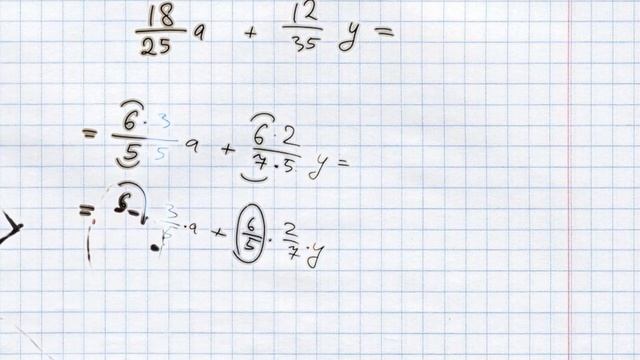 18/25 a + 12/35 y =
= 6·3/5·5 a + 6·2/7·5 y =
= 6 · 3/5 · a + 6/5 · 2/7 · y